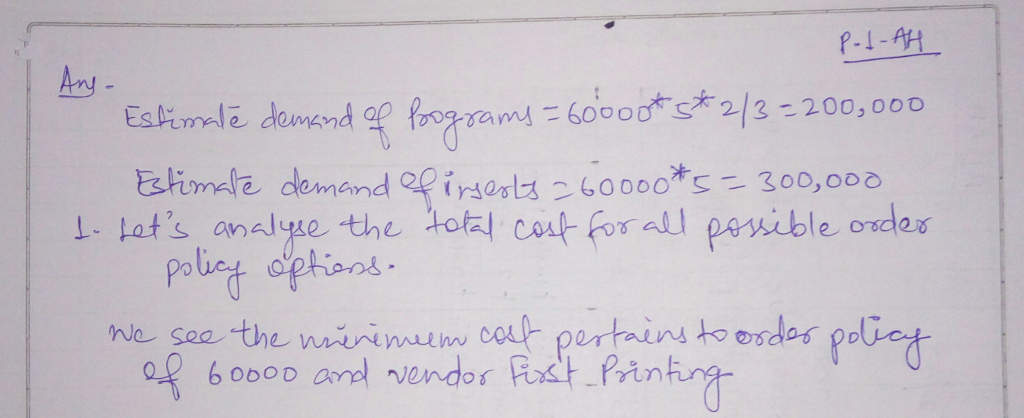 P-1-AH
Ans -
Estimate demand of Programs = 60000*5*2/3 = 200,000
Estimate demand of inserts = 60000*5 = 300,000
1. Let's analyse the total cost for all possible order
policy options.
We see the minimum cost pertains to order policy
of 60000 and vendor First Printing